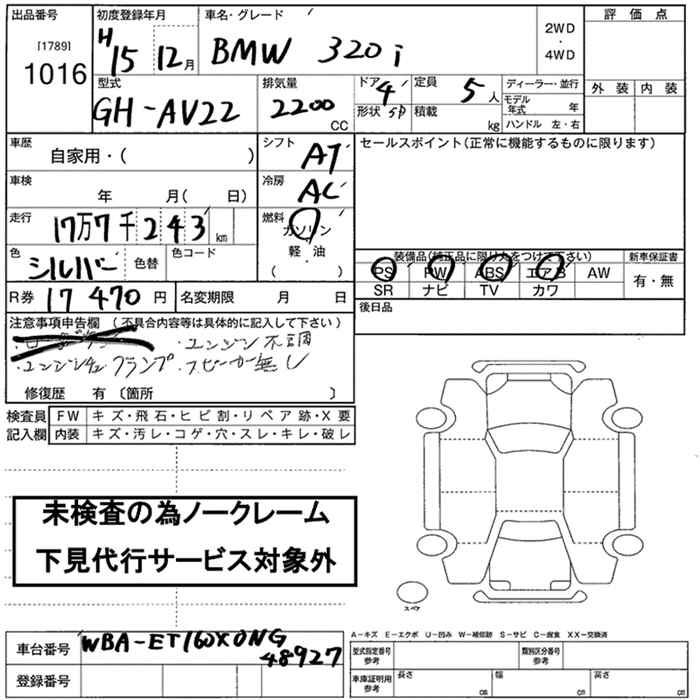 出品番号
[1789]
1016
初度登録年月
H 15 12月
車名・グレード
BMW 320i
2WD
・
4WD
評価点
外装 内装
型式
GH-AV22
排気量
2200 CC
ドア 4
形状 5P
定員 5人
積載 kg
ディーラー・並行
モデル年式 年
ハンドル 左・右
車歴
自家用・( )
シフト
AT
セールスポイント(正常に機能するものに限ります)
車検
年 月( 日)
冷房
AC
走行
17万7千243km
燃料
ガソリン
軽・油
( )
色
シルバー 色替
色コード
装備品(純正品に限り丸をつけて下さい)
PS PW ABS エアB AW
SR ナビ TV カワ
新車保証書
有・無
R券 17470円
名変期限 月 日
後日品
注意事項申告欄 (不具合内容等は具体的に記入して下さい)
・エンジン不調
・エンジンチェックランプ・スピーカー無し
修復歴 有〔箇所 〕
検査員記入欄
FW キズ・飛石・ヒビ割・リペア跡・X要
内装 キズ・汚レ・コゲ・穴・スレ・キレ・破レ
未検査の為ノークレーム
下見代行サービス対象外
スペア
A-キズ E-エクボ U-凹み W-補修跡 S-サビ C-腐食 XX-交換済
車台番号
WBA-ET160X0NG
48927
登録番号
型式指定番号
参考
類別区分番号
参考
車庫証明用
参考
長さ cm
幅 cm
高さ cm